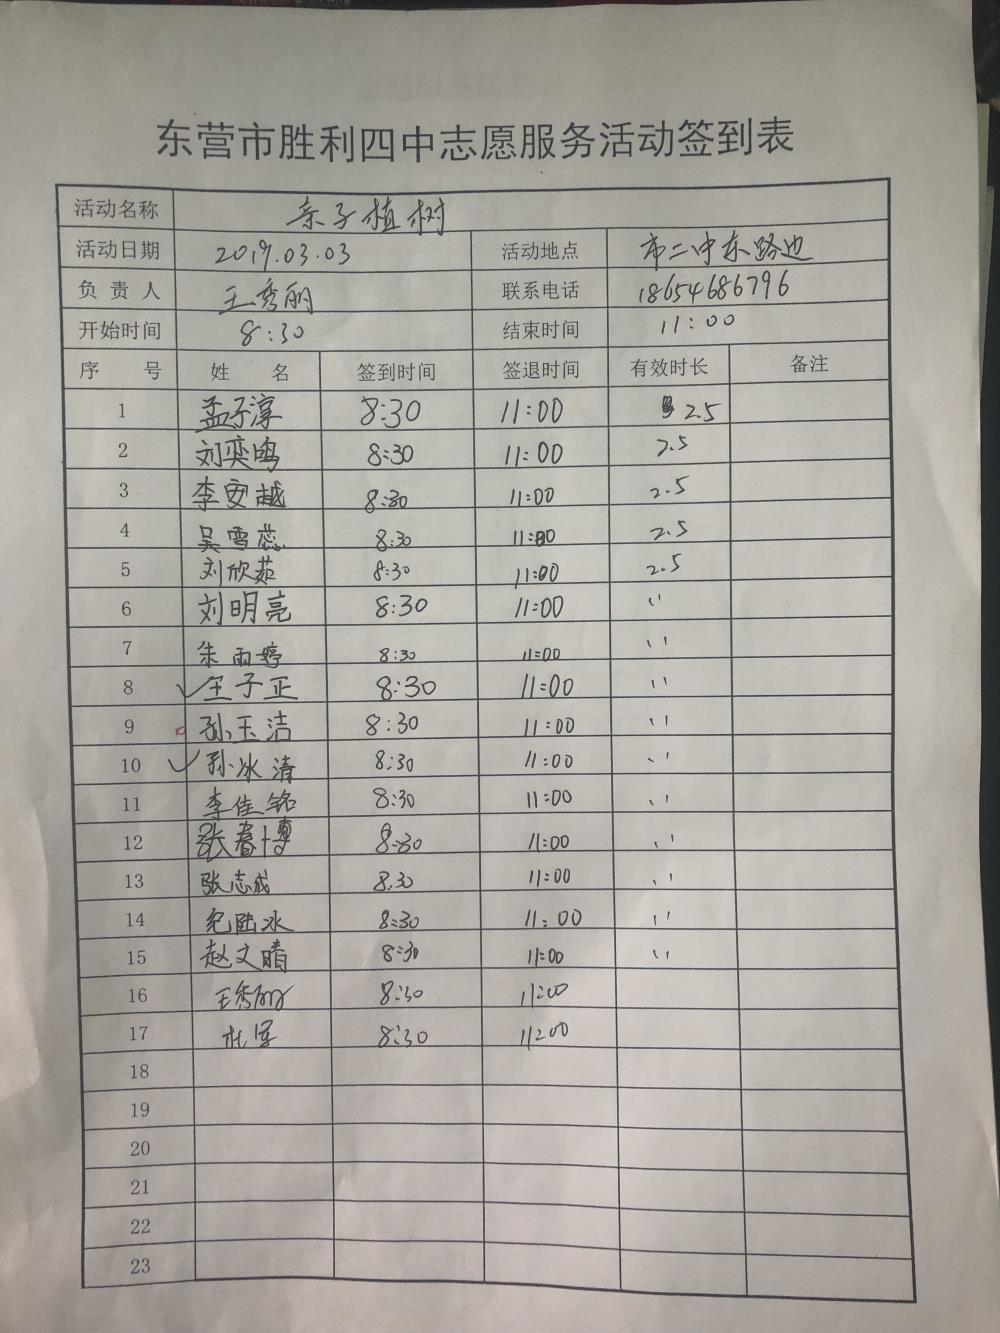 东营市胜利四中志愿服务活动签到表
活动名称 亲子植树
活动日期 2019.03.03 活动地点 市二中东路边
负责人 王秀丽 联系电话 18654686796
开始时间 8:30 结束时间 11:00
序号 姓名 签到时间 签退时间 有效时长 备注
1 孟子淳 8:30 11:00 2.5
2 刘奕鸣 8:30 11:00 2.5
3 李安越 8:30 11:00 2.5
4 吴雪蕊 8:30 11:00 2.5
5 刘欣茹 8:30 11:00 2.5
6 刘明亮 8:30 11:00 〃
7 朱雨婷 8:30 11:00 〃
8 王子正 8:30 11:00 〃
9 孙玉洁 8:30 11:00 〃
10 孙冰清 8:30 11:00 〃
11 李佳铭 8:30 11:00 〃
12 张春博 8:30 11:00 〃
13 张志成 8:30 11:00 〃
14 纪陆冰 8:30 11:00 〃
15 赵文晴 8:30 11:00 〃
16 王秀丽 8:30 11:00
17 杜军 8:30 11:00
18
19
20
21
22
23